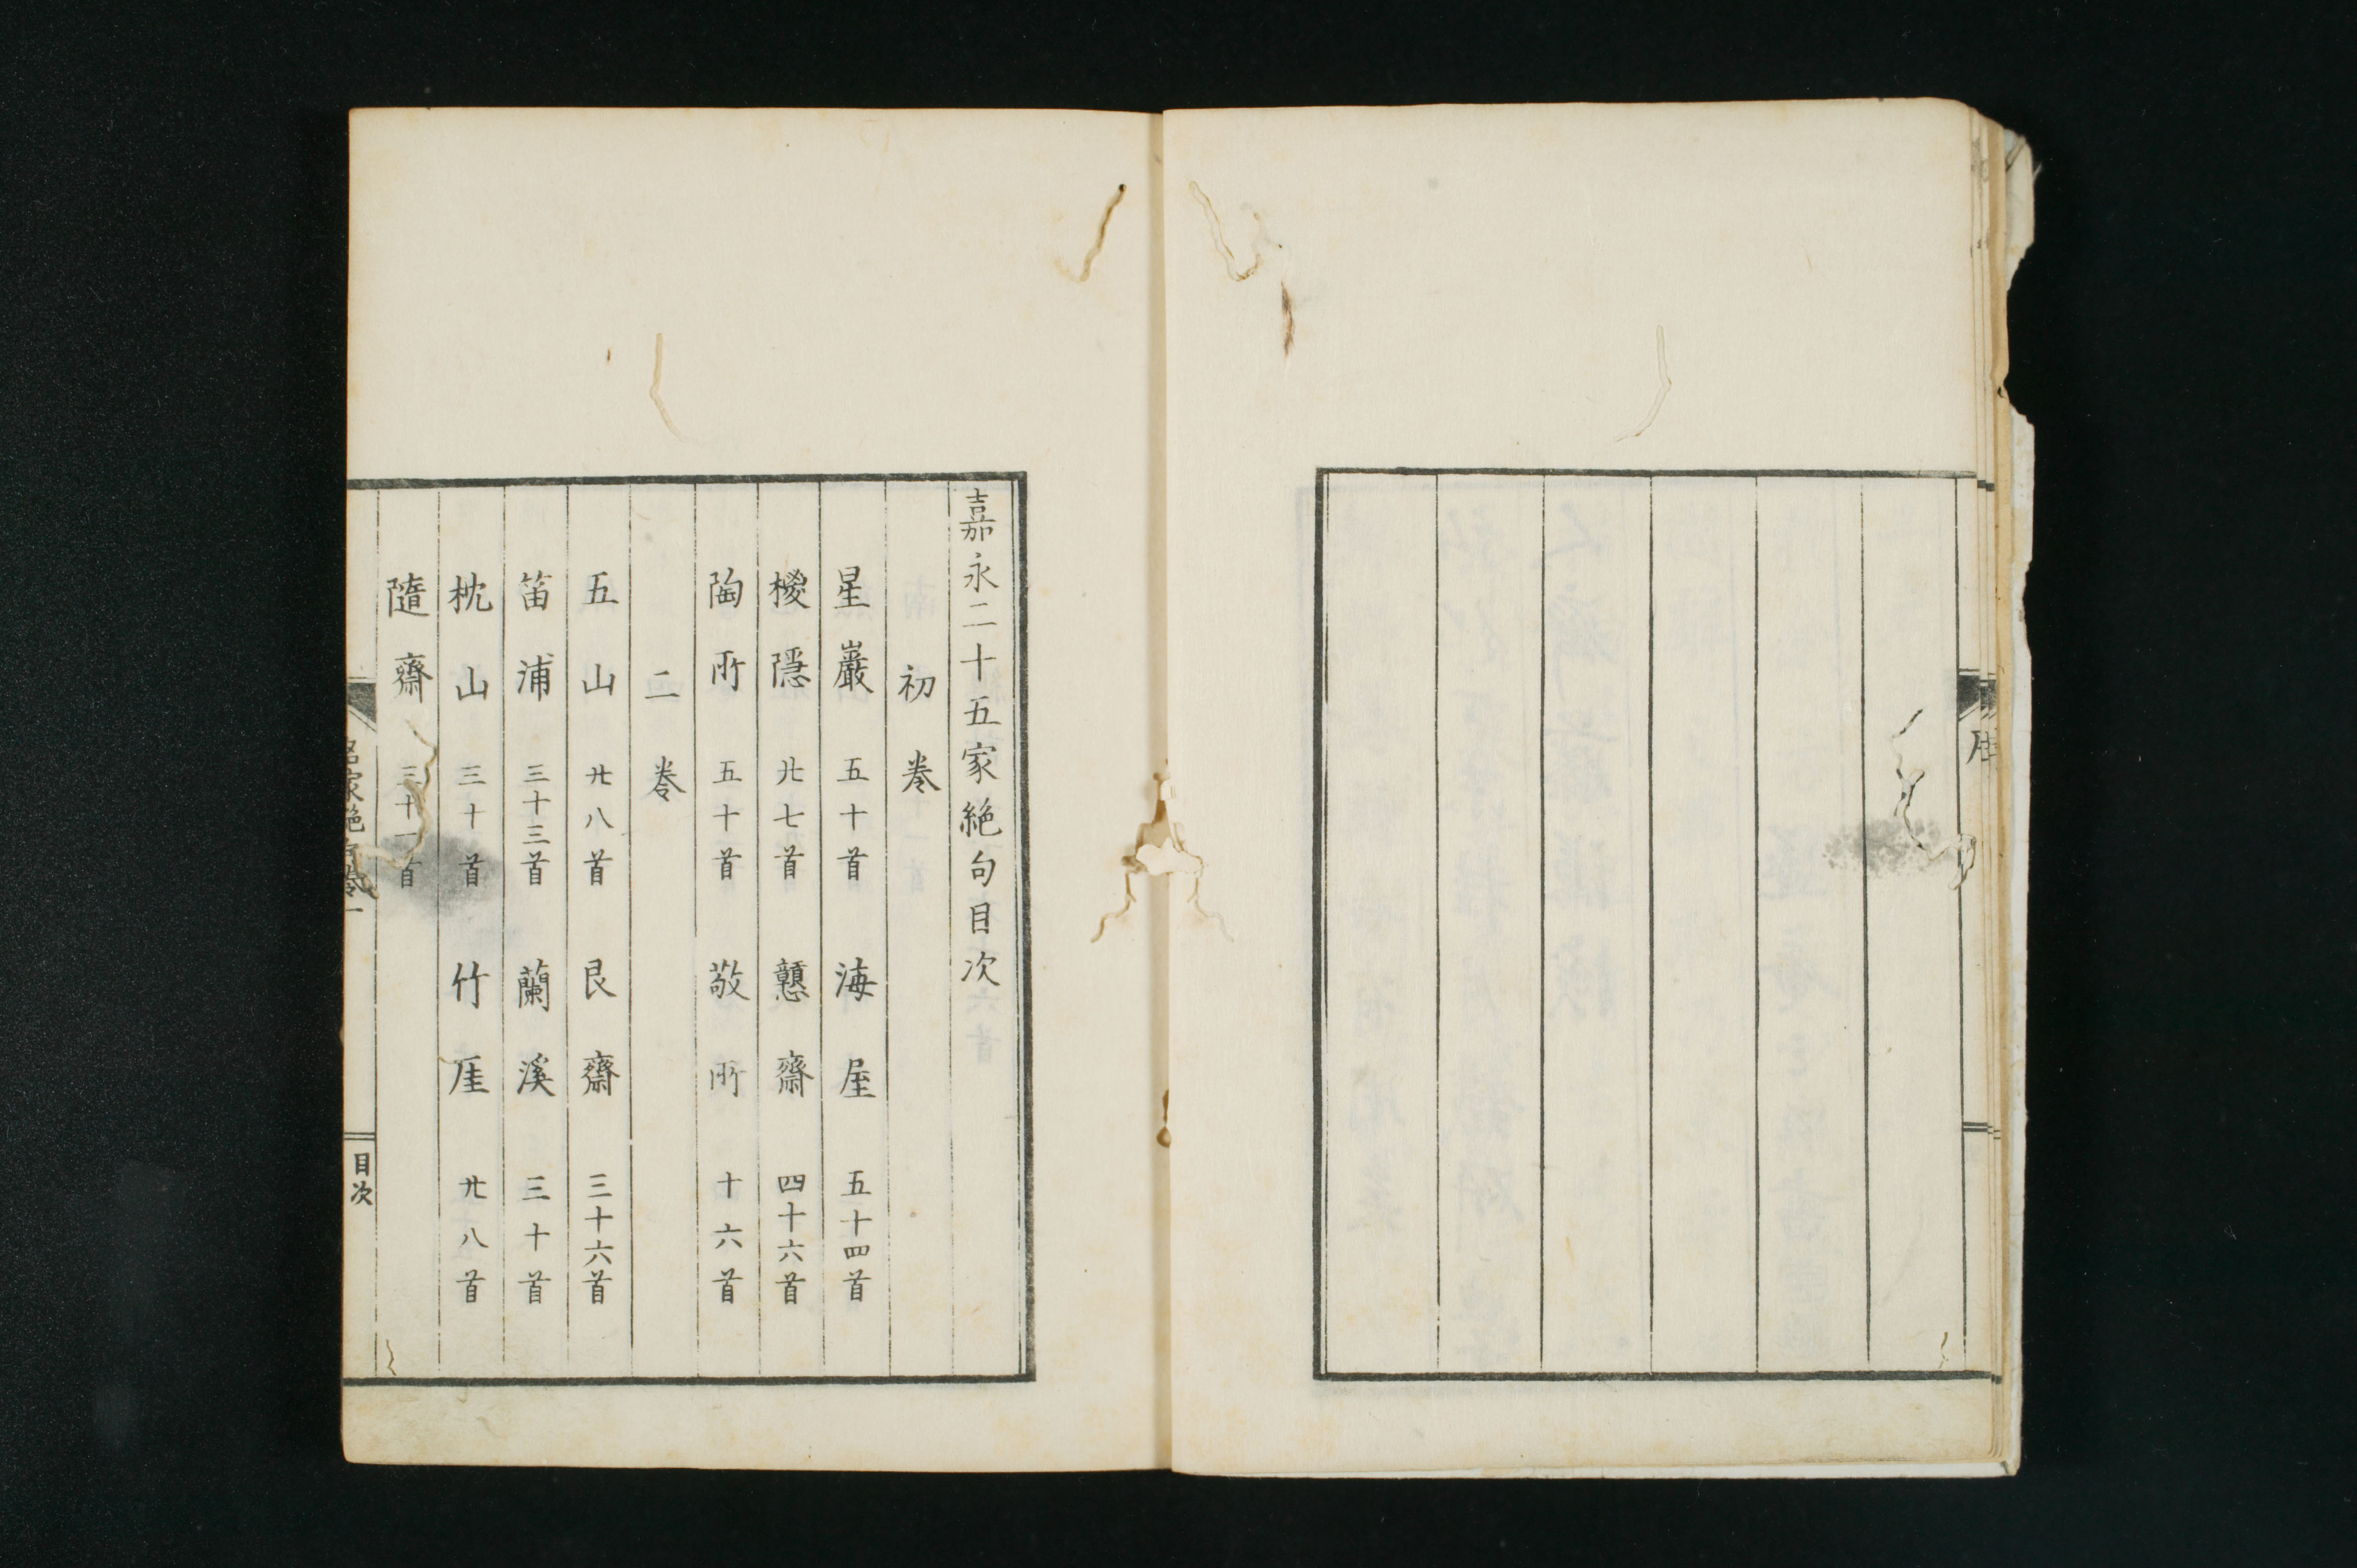 嘉永二十五家絶句目次
初巻
星巖 五十首 海屋 五十四首
椶隱 廿七首 戇齋 四十六首
陶所 五十首 敬所 十六首
二巻
五山 廿八首 艮齋 三十六首
笛浦 三十三首 蘭溪 三十首
枕山 三十首 竹厓 廿八首
隨齋 三十一首
目次